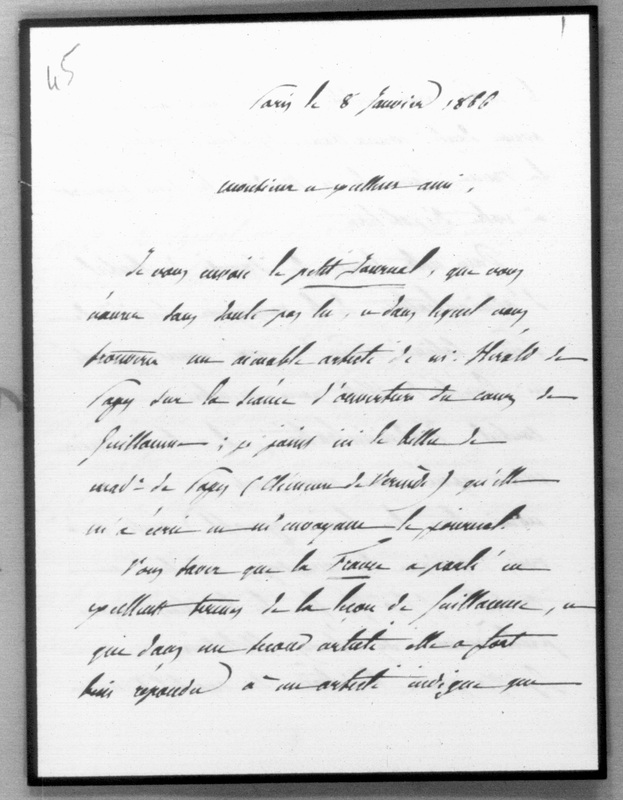 45
Paris le 8 Janvier 1866
monsieur et excellent ami,
Je vous envoie le petit Journal, que vous
n'aurez sans doute pas lu, et dans lequel vous
trouverez un aimable article de mr. Hérald de
Pagès sur la séance d'ouverture du cours de
Guillaume ; je joins ici le billet de
made de Pagès (Clémence de ) qu'elle
m'a écrit en m'envoyant le journal.
Vous savez que la France a parlé en
excellents termes de la leçon de Guillaume, et
que dans un second article elle a fort
bien répondu à un article indigne que